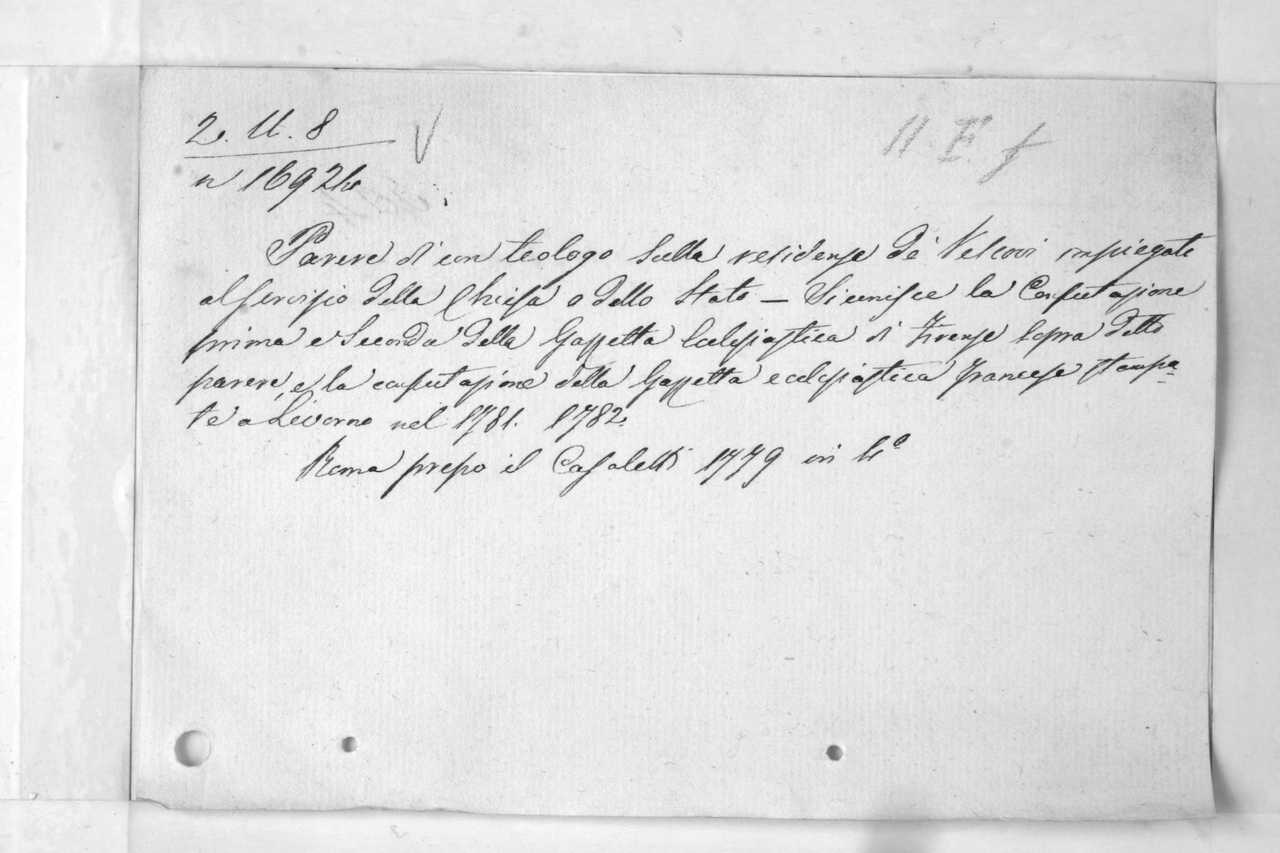 2. U. 8 V 11. F. f
n 16924
Parere di un teologo sulla residenza de' Vescovi impiegati
al servizio della Chiesa o dello Stato — Si unisce la Confutazione
prima e Seconda della Gazzetta Ecclesiastica di Firenze sopra detto
parere, e la confutazione della Gazzetta ecclesiastica francese stampa-
te a Livorno nel 1781. 1782.
Roma presso il Casaletti 1779 in 4°